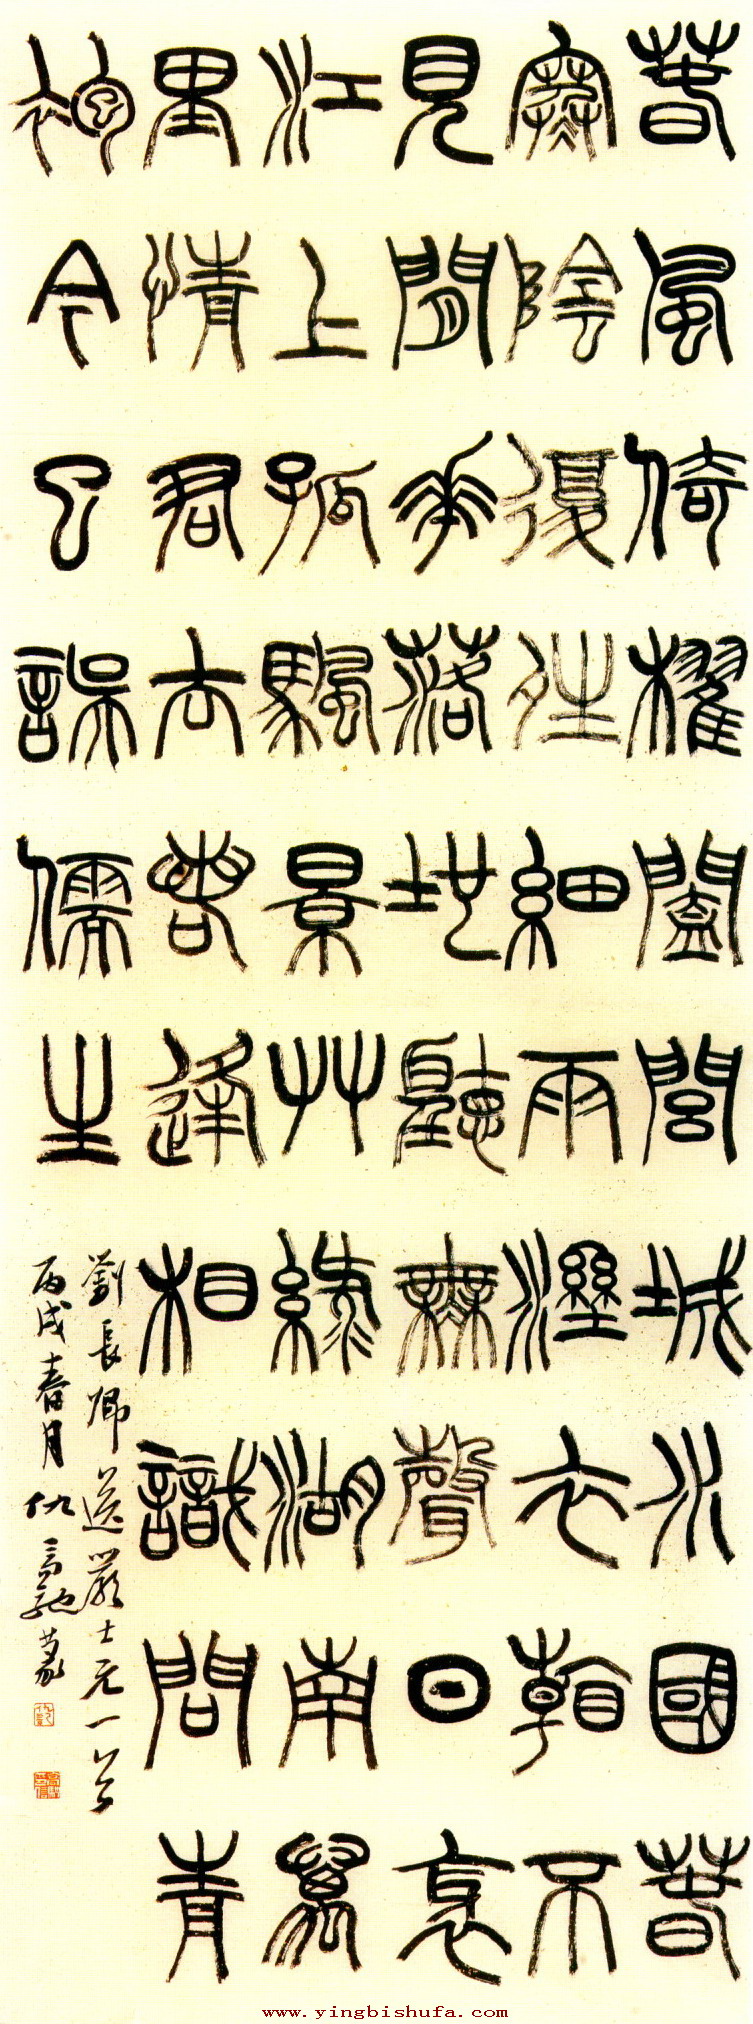 春風倚櫂闔閭城水國春
寒陰復夝細雨溼衣看不
見閒華落地聽無聲日衺
江上孤颿景艸綠湖南萬
里情君去若逢相識問青
袍今已誤儒生
劉長卿送嚴士元一首
丙戌春月仇高馳篆
www.yingbishufa.com